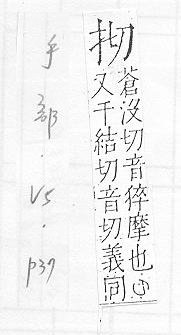 蒼没切音猝摩也
又千結切音切義同
手部·V5·p37